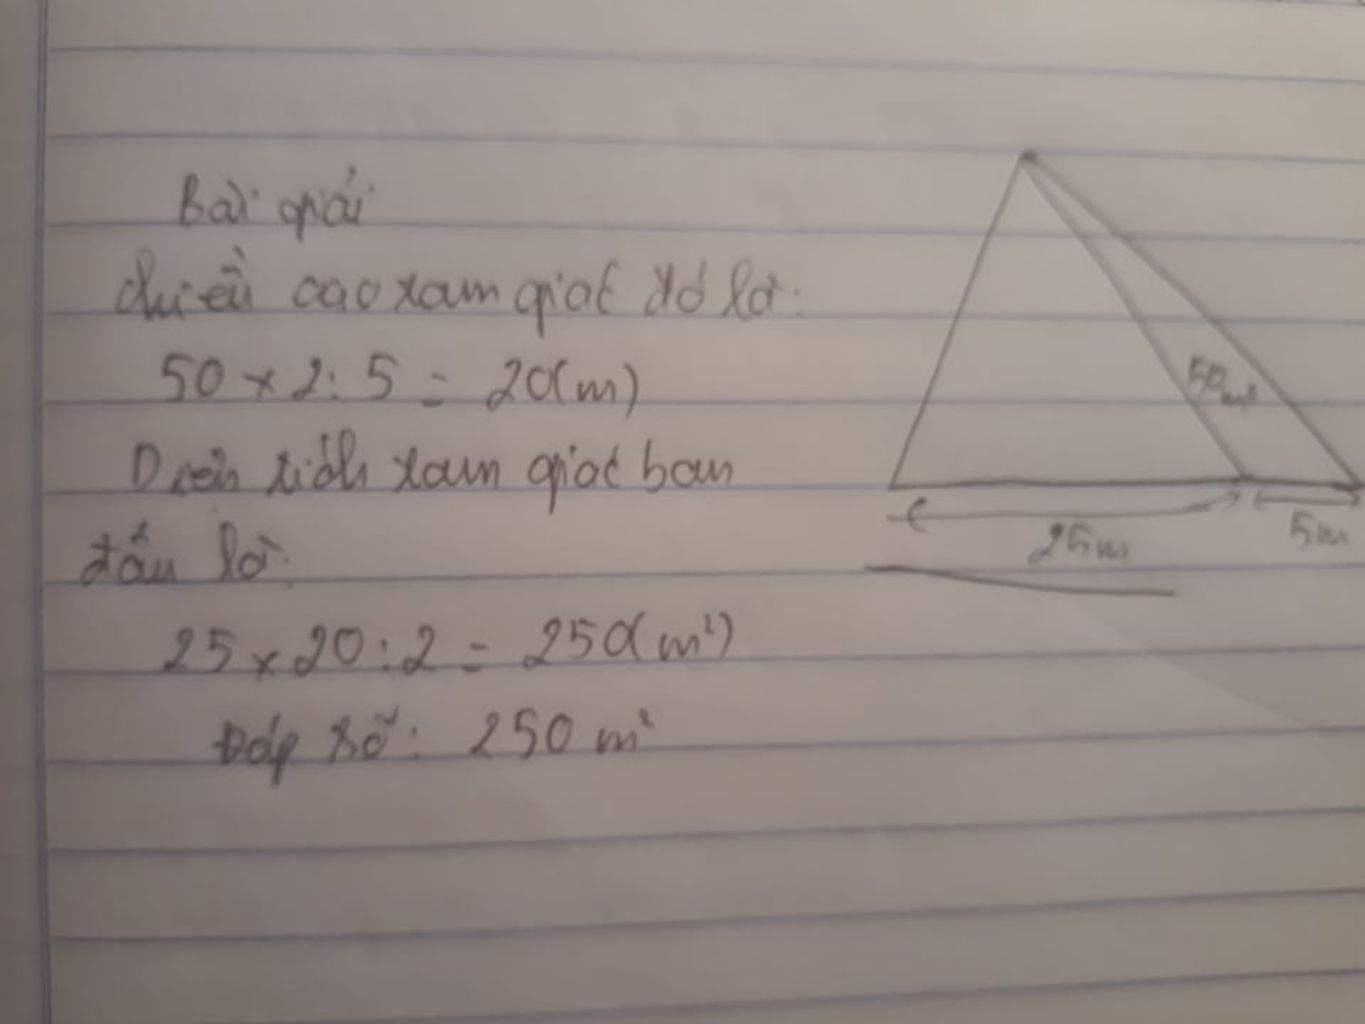 Bài giải
chiều cao tam giác đó là:
50 x 2 : 5 = 20(m)
Diện tích tam giác ban
đầu là:
25 x 20 : 2 = 250(m²)
Đáp số: 250 m²
50m²
25m
5m